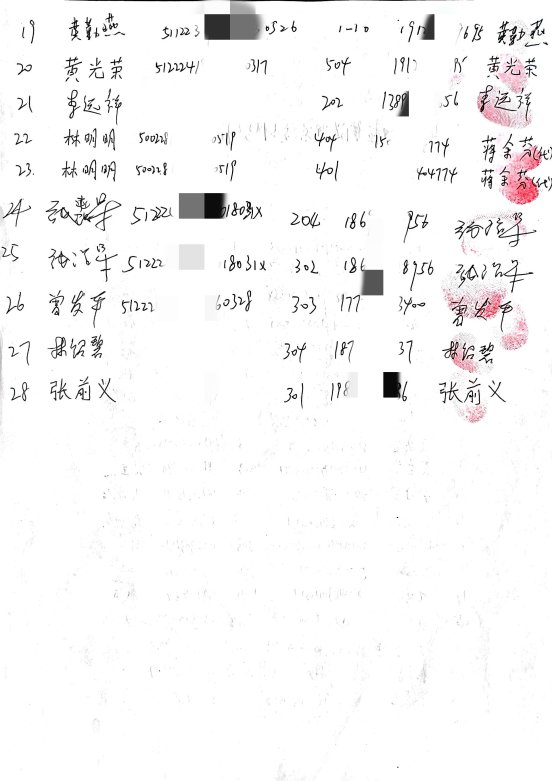 19 黄勤燕 511223 0526 1-10 191 1695 黄勤燕
20 黄光荣 5122241 0317 504 191 5 黄光荣
21 李远祥 202 1389 56 李远祥
22 林明明 500228 0519 404 15 774 蒋余芬(代)
23. 林明明 500228 0519 401 404774 蒋余芬(代)
24 51222 18031x 204 186 956
25 51222 18031x 302 186 8956
26 曾发平 51222 60328 303 177 3400 曾发平
27 林绍碧 304 187 37 林绍碧
28 张前义 301 198 6 张前义